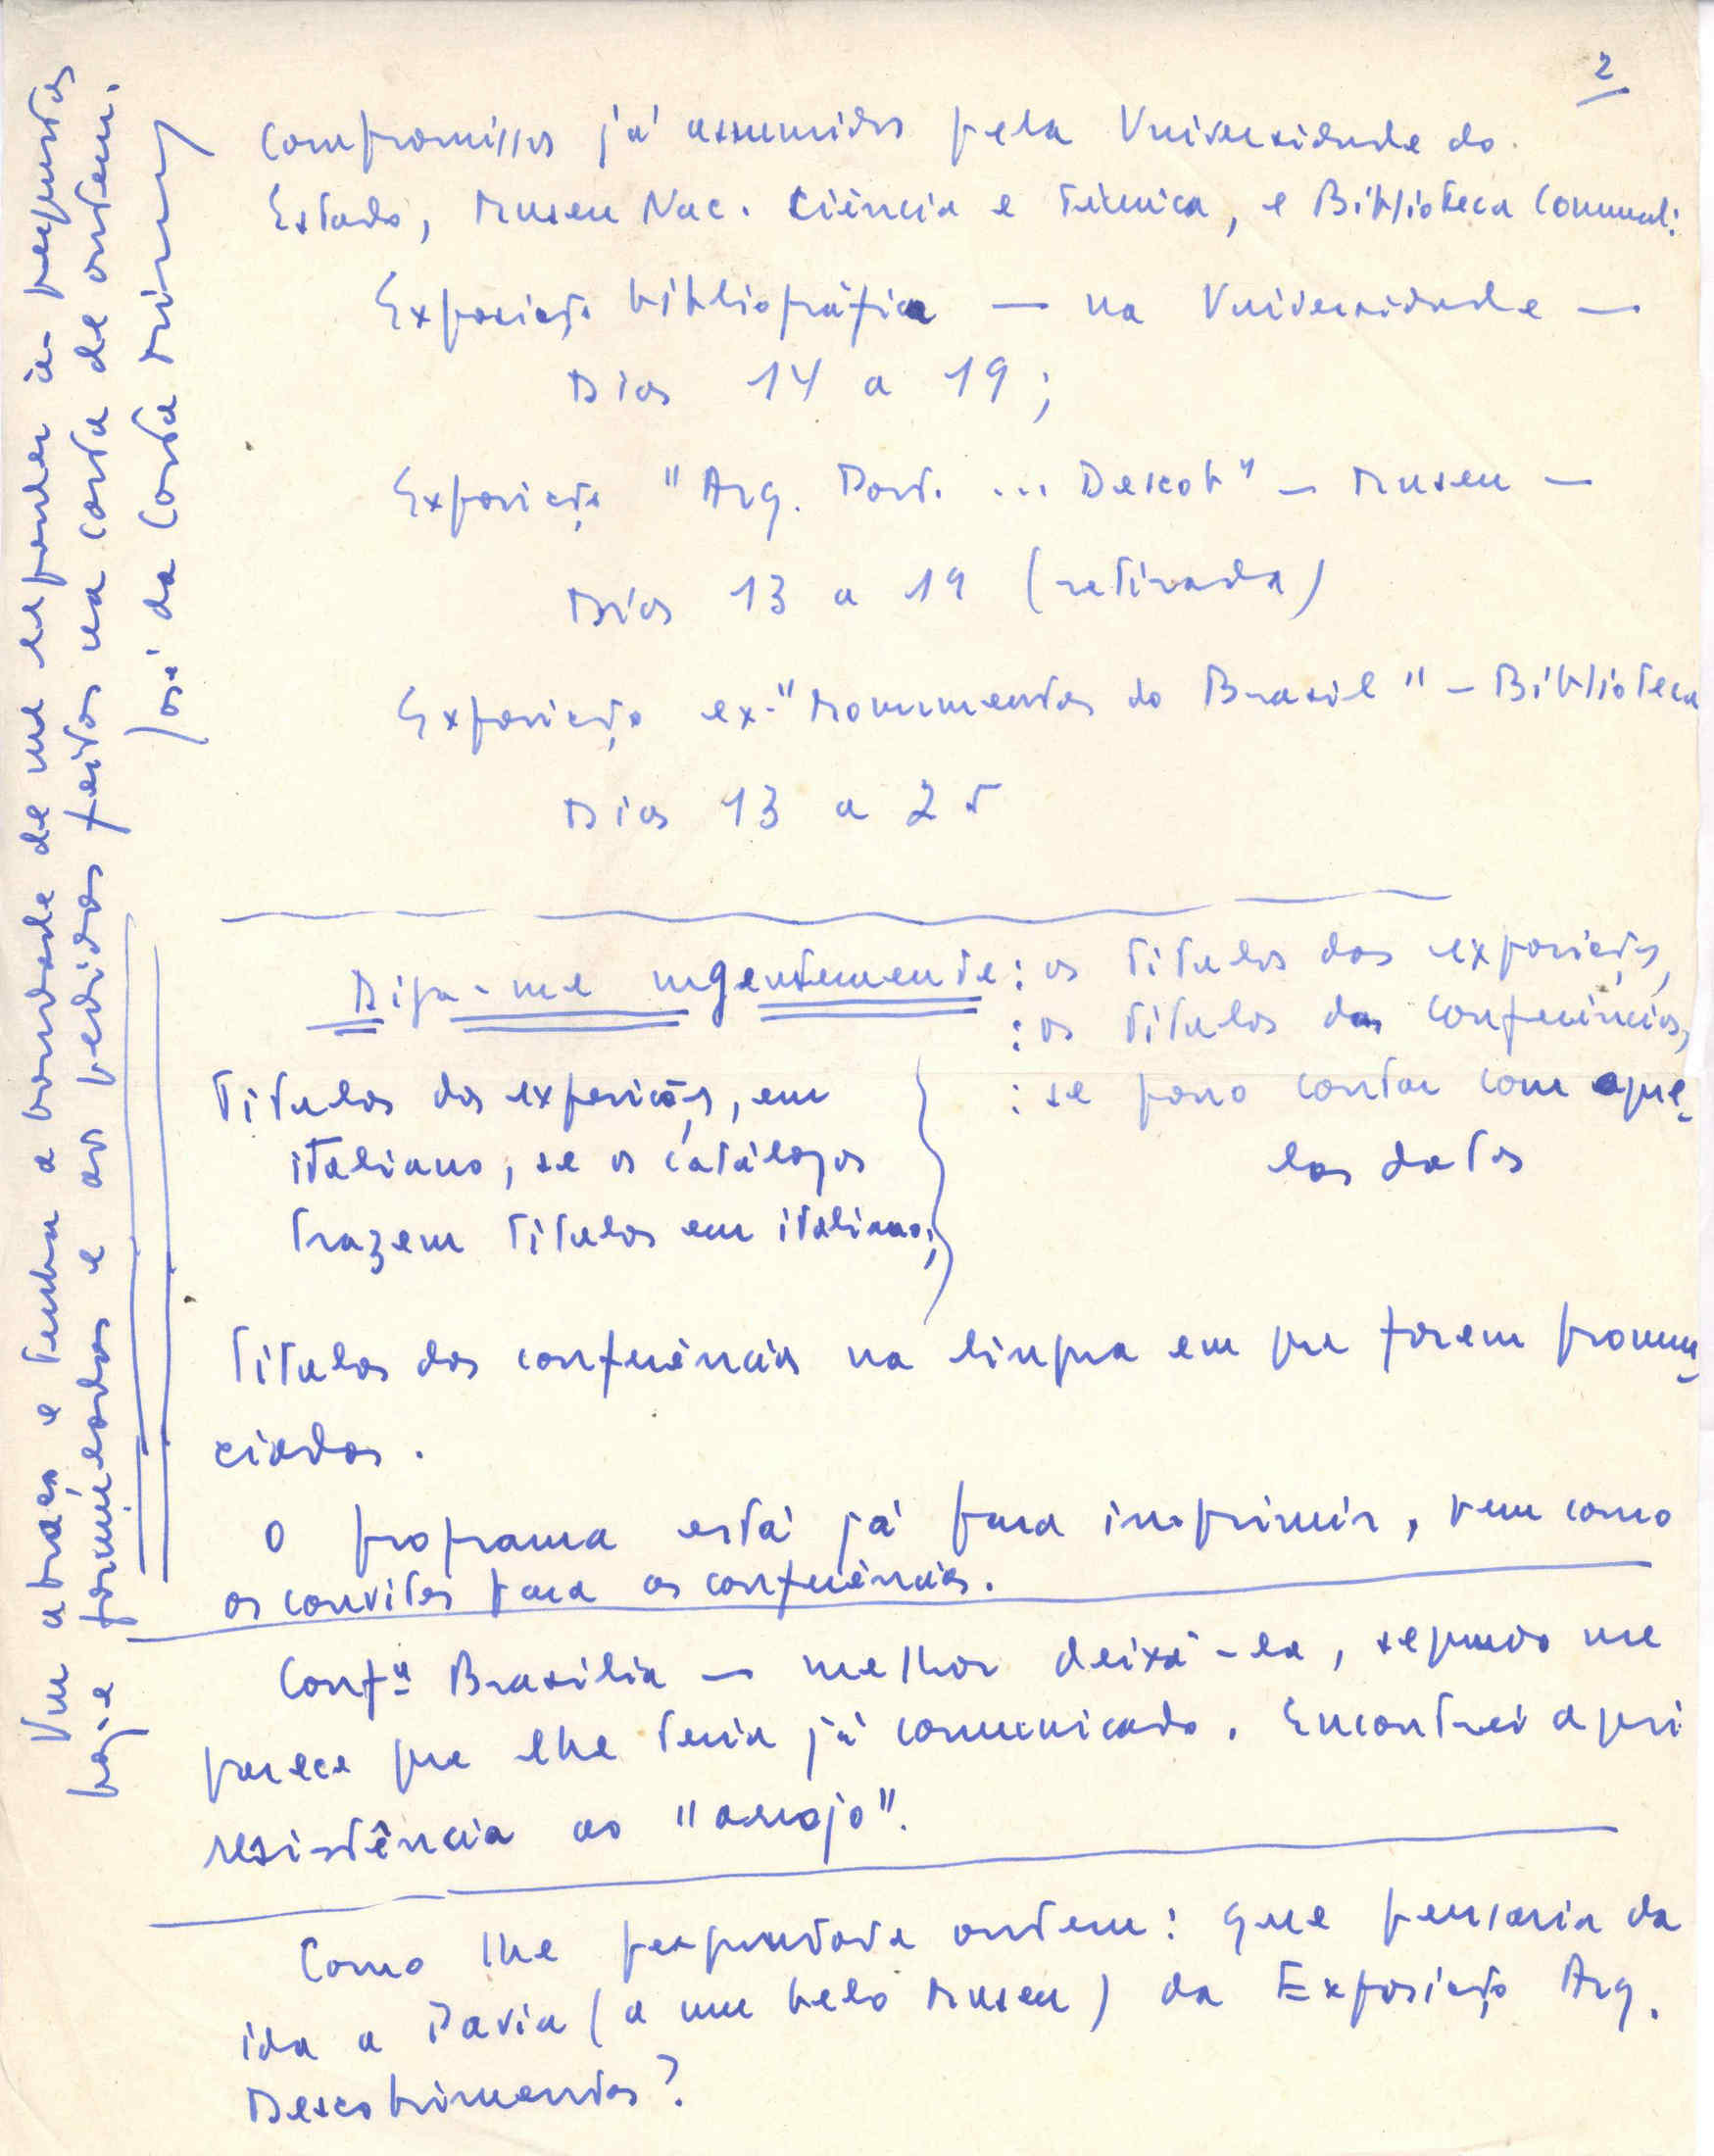 2
compromissos já assumidos pela Universidade do
Estado, Museu Nac. Ciência e Técnica, e Biblioteca Comunal:
Exposição bibliográfica — na Universidade —
Dias 14 a 19;
Exposição "Arq. Port. ... Descob" — Museu —
Dias 13 a 19 (retirada)
Exposição ex-"Monumentos do Brasil" — Biblioteca
Dias 13 a 25
Diga-me urgentemente: os titulos das exposições,
: os titulos das conferências,
: se posso contar com aque-
las datas
Titulos das exposições, em
italiano, se os catálogos
trazem titulos em italiano;
Titulos das conferências na lingua em que forem pronun-
ciadas.
O programa está já para imprimir, bem como
os convites para as conferências.
Confª Brasilia — melhor deixá-la, segundo me
parece que lhe teria já comunicado. Encontrei aqui
resistência ao "arrojo".
Como lhe perguntava ontem: que pensaria da
ida a Pavia (a um belo Museu) da Exposição Arq.
Descobrimentos?
Um abraço e tenha a bondade de me responder às perguntas
hoje formuladas e aos pedidos feitos na carta de ontem.
José da Costa Miranda